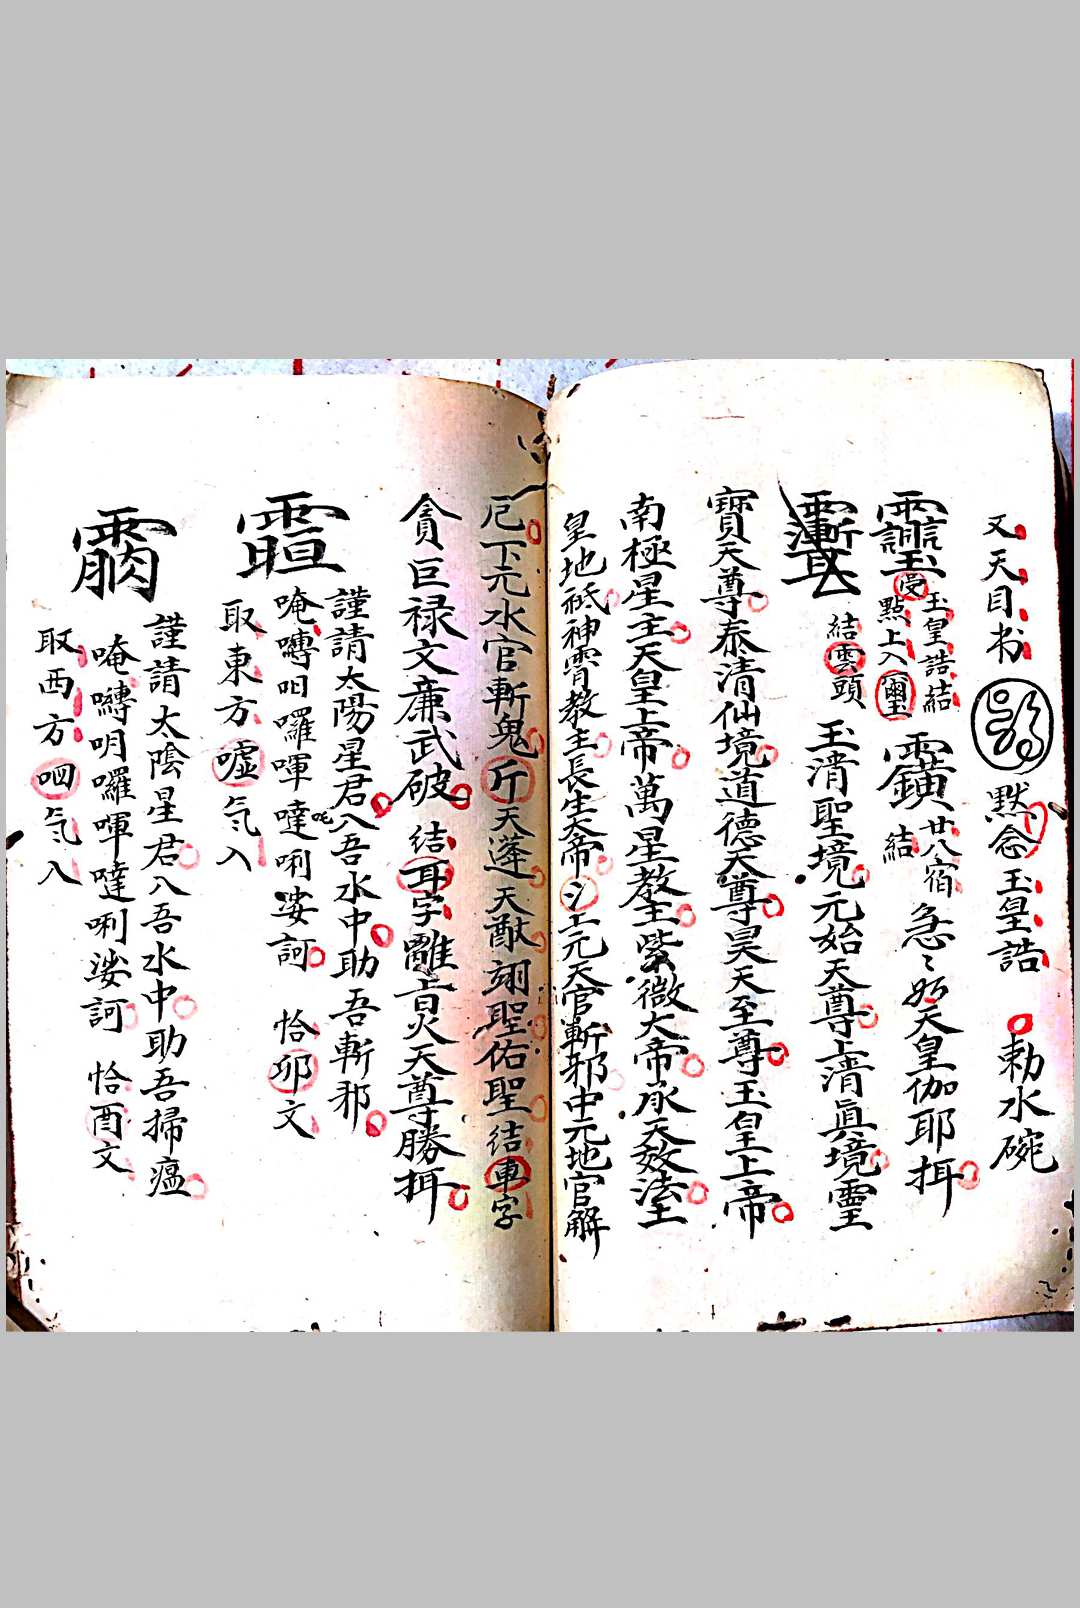 又天目书 黙念玉皇誥 勅水碗
玉皇誥結
點上入
廿八宿
結
急〻如天皇伽耶挕
結雲頭
玉清聖境元始天尊上清真境靈
寶天尊泰清仙境道德天尊昊天至尊玉皇上帝
南極星主天皇上帝萬星教主紫微大帝承天效法土
皇地祇神霄教主長生大帝 上元天官斬邪中元地官解
厄下元水官斬鬼斤天蓬天猷翊聖佑聖結車字
貪巨禄文廉武破 結耳字 天尊勝挕
謹請太陽星君入吾水中助吾斬邪
唵嚩呬囉嗶噠唎娑訶 恰卯文
取東方噓気入
謹請太陰星君入吾水中助吾掃瘟
唵嚩呬囉嗶噠唎娑訶 恰酉文
取西方呬気入